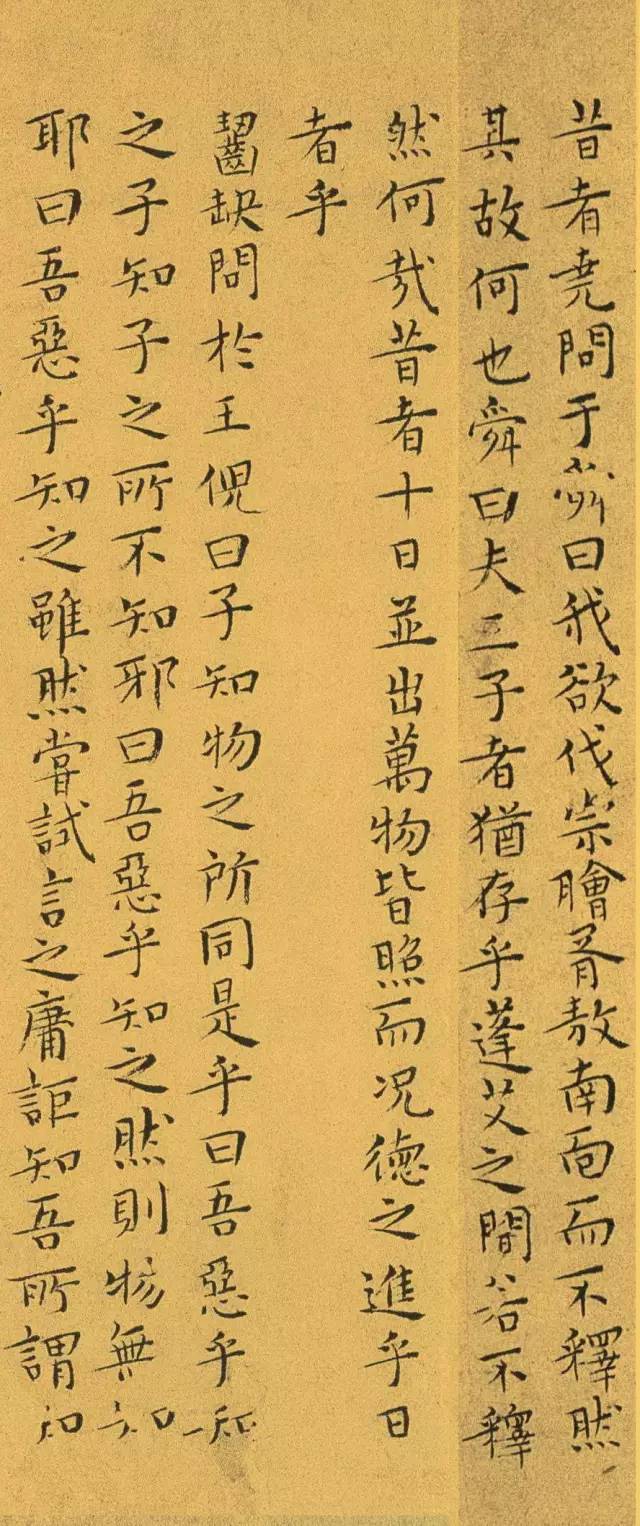 昔者堯問于舜曰我欲伐宗膾胥敖南面而不釋然
其故何也舜曰夫三子者猶存乎蓬艾之間若不釋
然何哉昔者十日並出萬物皆照而况德之進乎日
者乎
齧缺問於王倪曰子知物之所同是乎曰吾惡乎知
之子知子之所不知邪曰吾惡乎知之然則物無知
耶曰吾惡乎知之雖然嘗試言之庸詎知吾所謂知